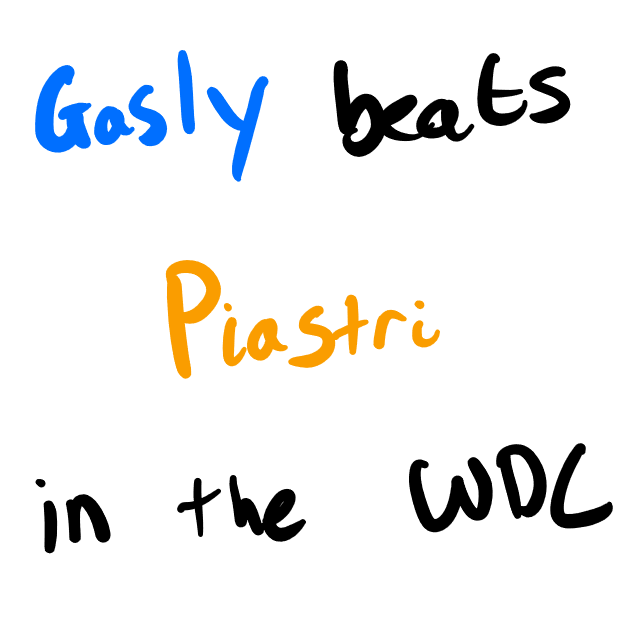 Gasly beats
Piastri
in the WDC